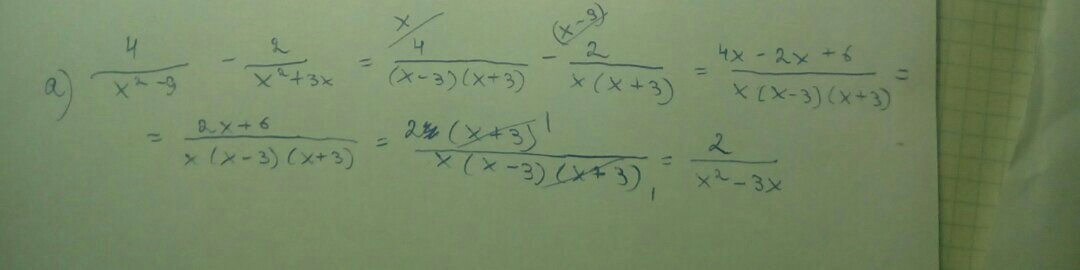 a) 4/(x² - 9) - 2/(x² + 3x) = x/ 4/((x-3)(x+3)) - (x-3)/ 2/(x(x+3)) = (4x - 2x + 6)/(x(x-3)(x+3)) =
= (2x+6)/(x(x-3)(x+3)) = 2(x+3)¹/(x(x-3)(x+3)₁) = 2/(x² - 3x)